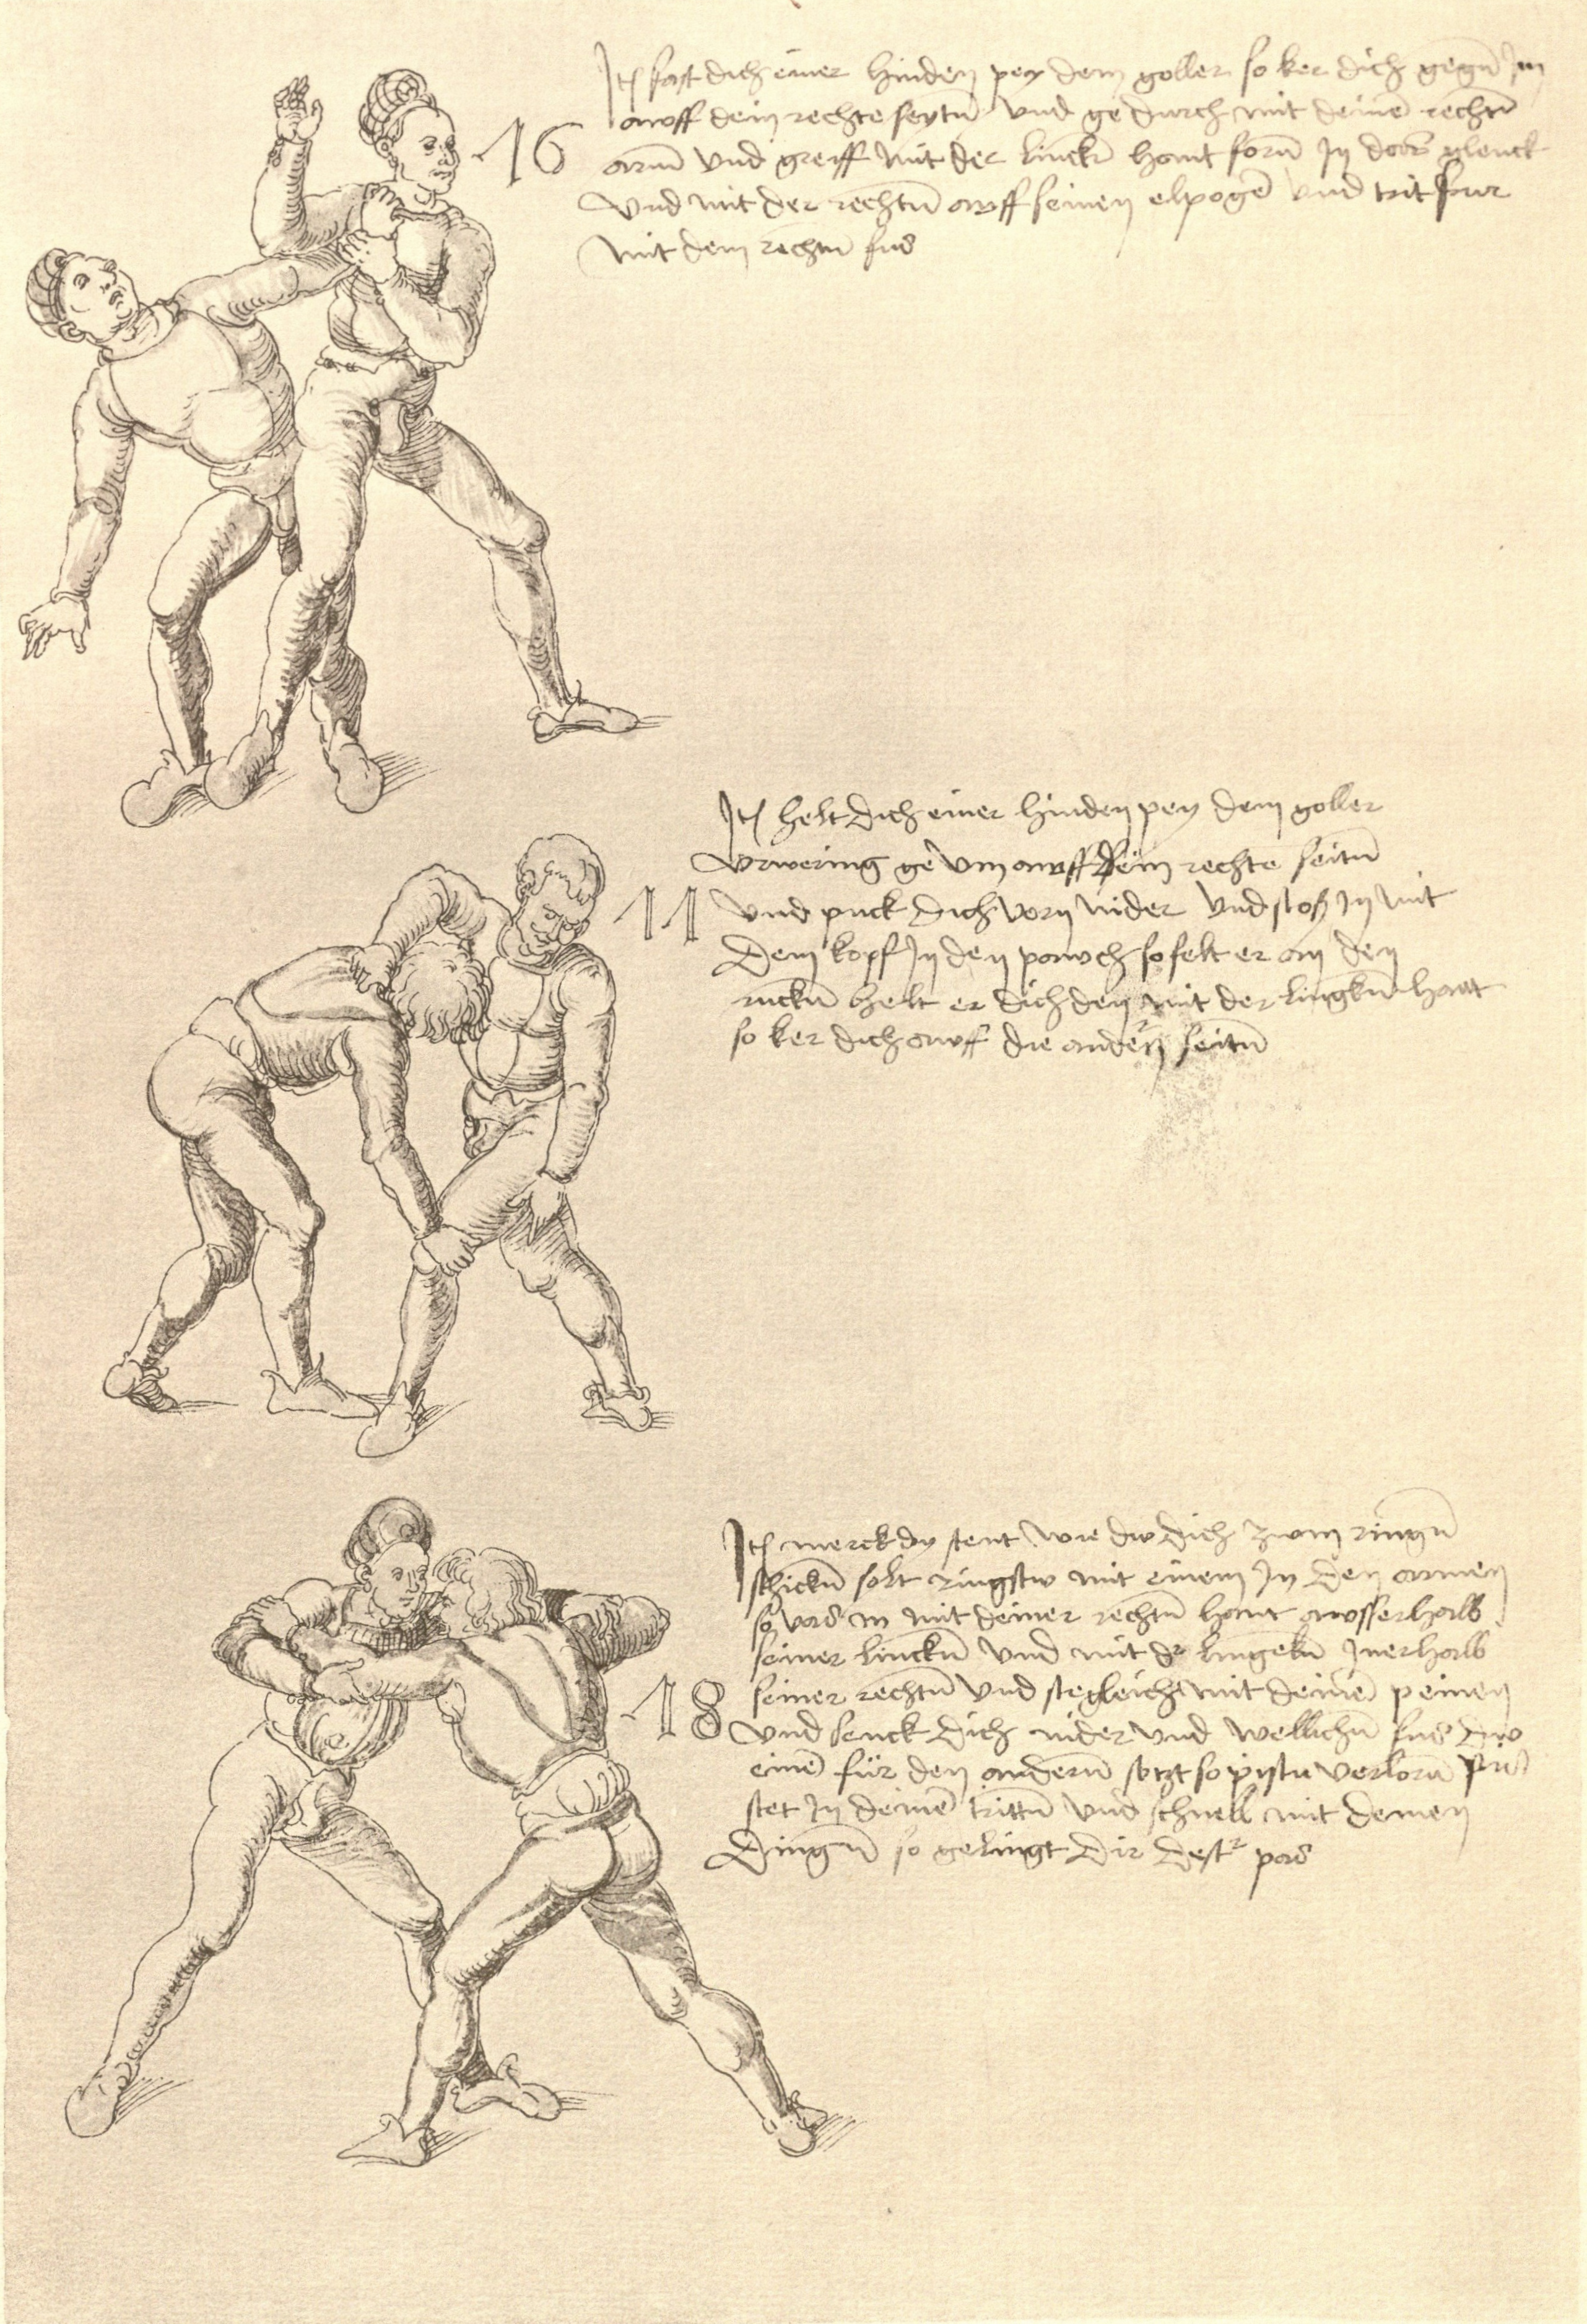 Itз fast dich einer hinden pey dem goller so ker dich gegn̄ Im
awff dein rechte seytn̄ vnd ge durch mit deinē rechtn̄
arm̄ vnd greiff mit der linckn̄ hant forn̄ In das glenck
vnd mit der rechtn̄ awff seinen elpogē vnd trit fur
mit dem rechtn̄ fus
16
Itз helt dich einer hinden pey dem goller
vrwering ge vm awff dein rechte seitn̄
11
vnd puck dich vorn nider vnd stoß In mit
dem kopf In den pawch so felt er an den
ruckn̄ helt er dich den mit der lingkn̄ hant
so ker dich awff die andern seitn̄
Itз merck dy stent wie dw dich zwm ringn̄
schickn̄ solt ringstw mit einem In den armen
so vas in mit deiner rechtn̄ hant awsserhalb
seiner linckn̄ vnd mit dr lingekn̄ Inerhalb
18
seiner rechtn̄ vnd ste gleich mit deinē peinen
vnd senck dich nider vnd wellichn̄ fus dw
einē für den andern̄ setzt so pistu verlorn̄
stet In deinē trittn̄ vnd schnell mit deinen
dingn̄ so gelingt dir destr pas